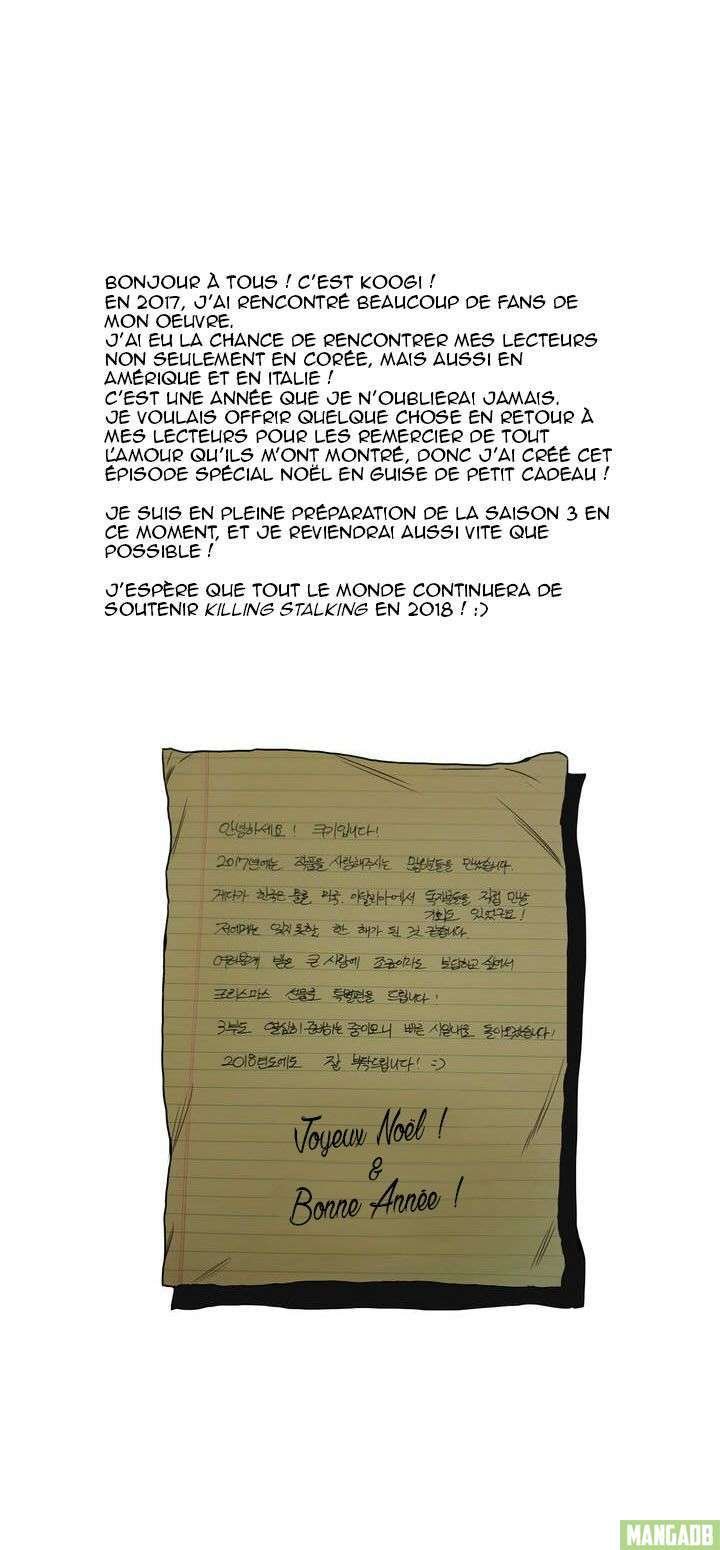 BONJOUR À TOUS ! C'EST KOOGI !
EN 2017, J'AI RENCONTRÉ BEAUCOUP DE FANS DE
MON OEUVRE.
J'AI EU LA CHANCE DE RENCONTRER MES LECTEURS
NON SEULEMENT EN CORÉE, MAIS AUSSI EN
AMÉRIQUE ET EN ITALIE !
C'EST UNE ANNÉE QUE JE N'OUBLIERAI JAMAIS.
JE VOULAIS OFFRIR QUELQUE CHOSE EN RETOUR À
MES LECTEURS POUR LES REMERCIER DE TOUT
L'AMOUR QU'ILS M'ONT MONTRÉ, DONC J'AI CRÉÉ CET
ÉPISODE SPÉCIAL NOËL EN GUISE DE PETIT CADEAU !
JE SUIS EN PLEINE PRÉPARATION DE LA SAISON 3 EN
CE MOMENT, ET JE REVIENDRAI AUSSI VITE QUE
POSSIBLE !
J'ESPÈRE QUE TOUT LE MONDE CONTINUERA DE
SOUTENIR KILLING STALKING EN 2018 ! :)
안녕하세요! 쿠기입니다!
2017년에는 작품을 사랑해주시는 많은 분들을 만났습니다.
게다가 한국은 물론 미국, 이탈리아에서 독자분들을 직접 만날
기회도 있었구요!
저에게는 잊지 못할 한 해가 된 것 같습니다.
여러분께 받은 큰 사랑에 조금이라도 보답하고 싶어서
크리스마스 선물로 특별편을 드립니다!
3부도 열심히 준비하는 중이오니 빠른 시일내로 돌아오겠습니다!
2018년도에도 잘 부탁드립니다! :)
Joyeux Noël !
&
Bonne Année !
MANGADB